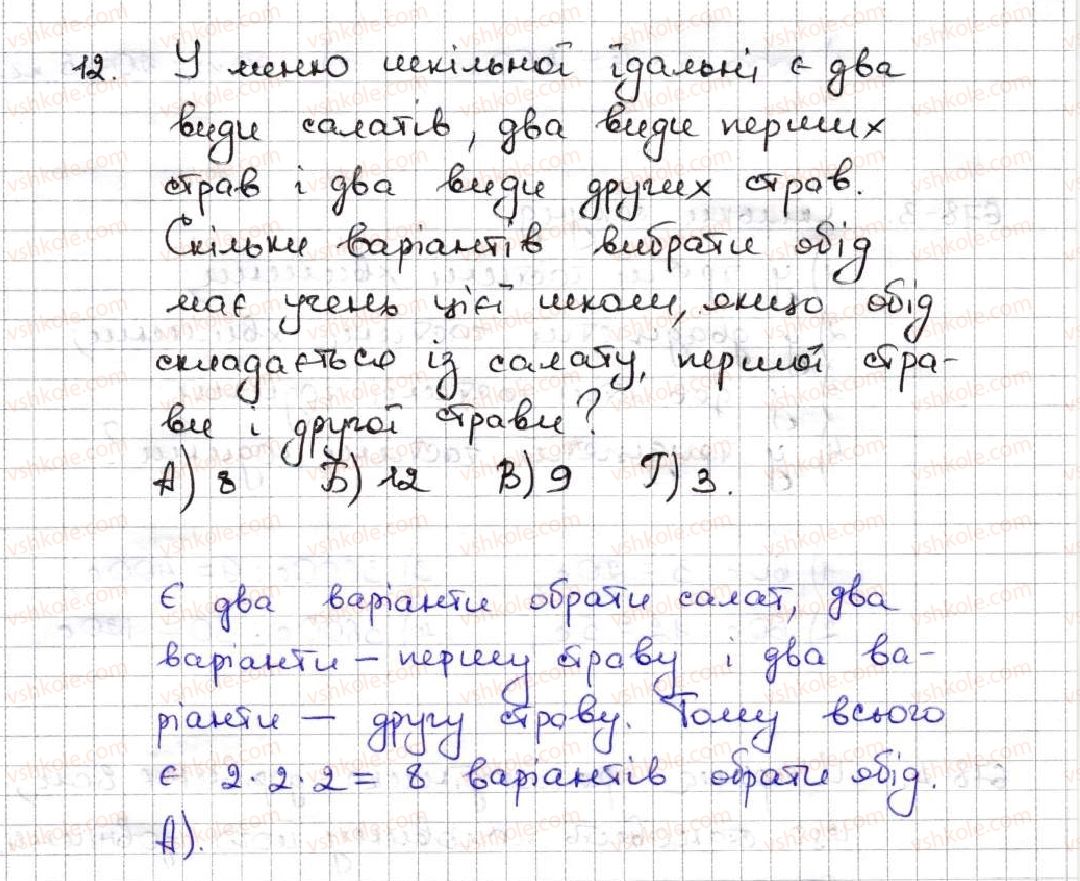 12. У меню шкільної їдальні є два
види салатів, два види перших
страв і два види других страв.
Скільки варіантів вибрати обід
має учень цієї школи, якщо обід
складається із салату, першої стра-
ви і другої страви?
А) 8 Б) 12 В) 9 Г) 3.
Є два варіанти обрати салат, два
варіанти – першу страву і два ва-
ріанти – другу страву. Тому всього
є 2·2·2 = 8 варіантів обрати обід.
А).